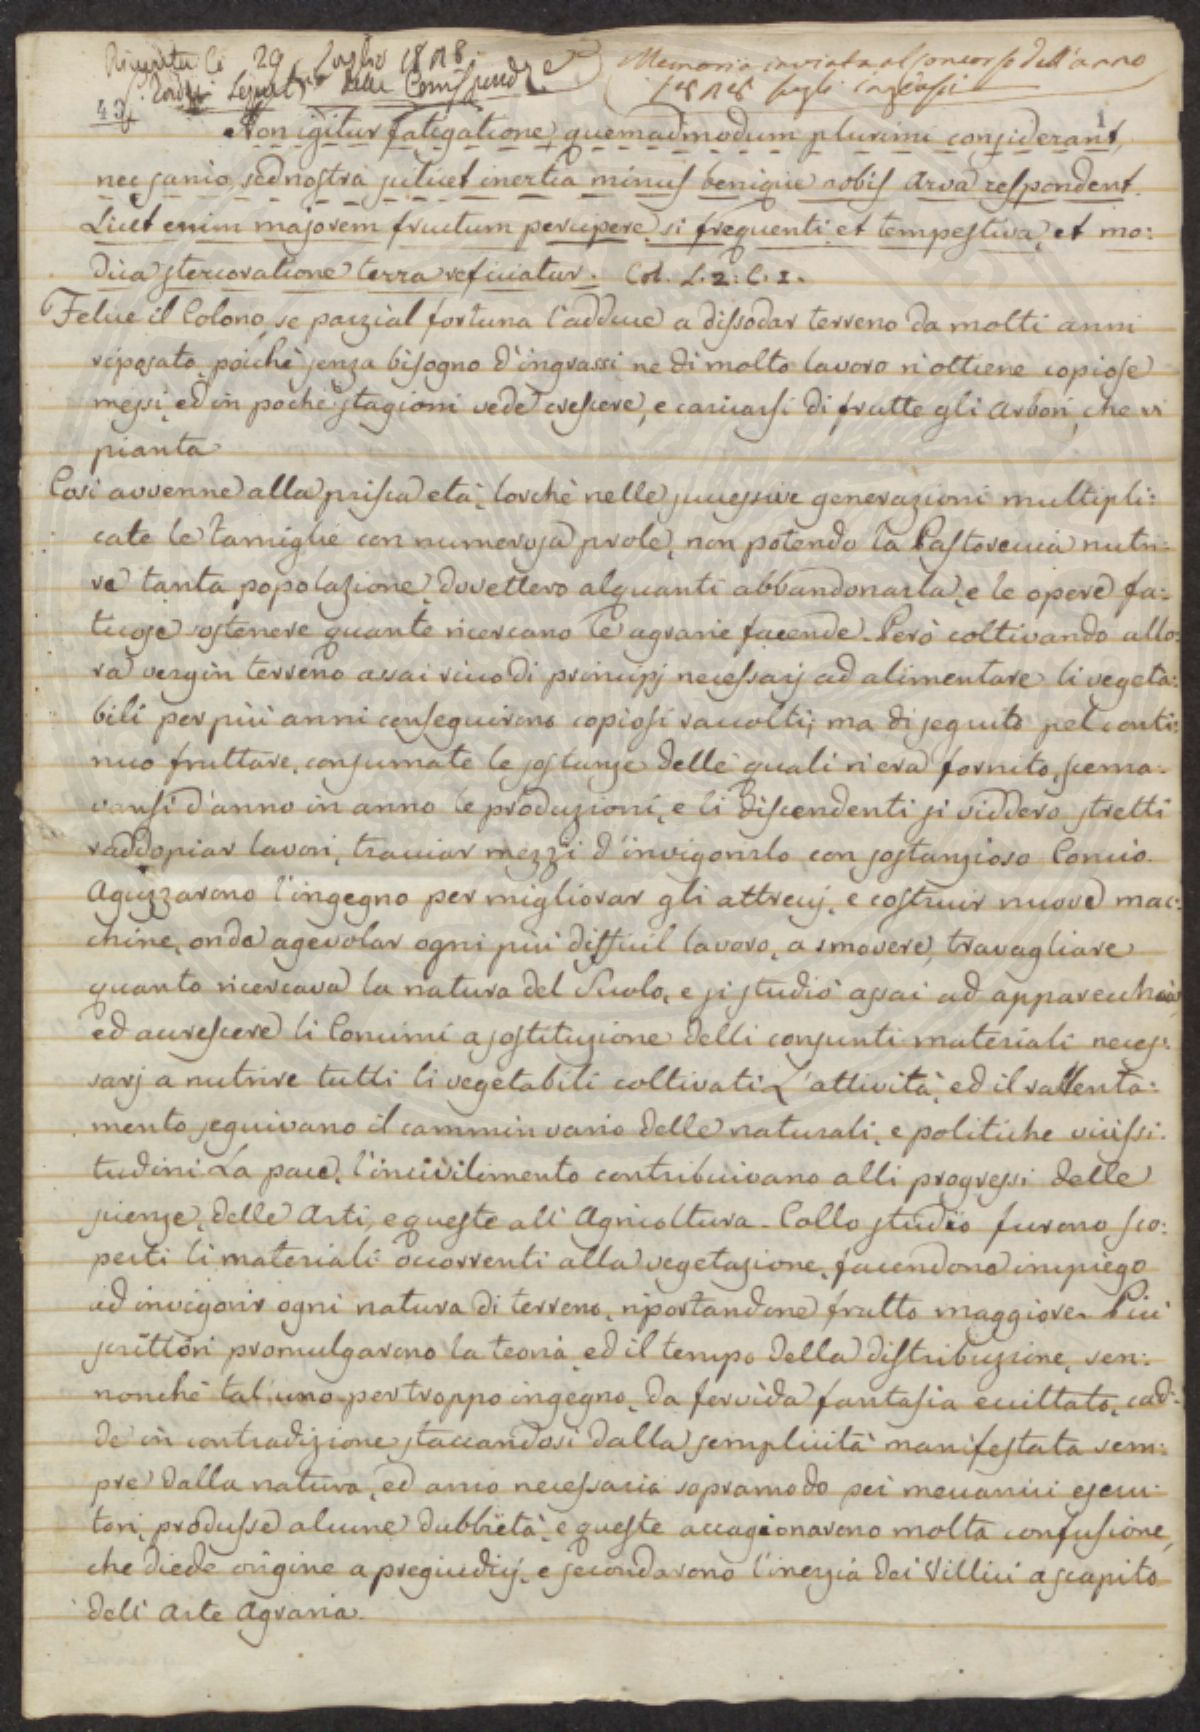 Ricevuta li 29 Luglio 1818.
Segret.º della Corrispond.
Memoria inviata al Concorso dell'anno
1818 sugli ingrassi
43
1
Non igitur fatigatione, quemadmodum plurimi considerant,
nec senio, sed nostra scilicet inertia minus benigne nobis arva respondent.
Licet enim majorem fructum percipere, si frequenti, et tempestiva, et mo:
dica stercoratione terra reficiatur. Col. L. 2: C. 1.
Felice il Colono, se parzial fortuna l'adduce a dissodar terreno da molti anni
riposato, poichè senza bisogno d'ingrassi ne di molto lavoro n'ottiene copiose
messi, ed in poche stagioni vede crescere, e caricarsi di frutte gli Arbori, che vi
pianta
Cosi avvenne alla prisca età, lorchè nelle successive generazioni multipli:
cate le famiglie con numerosa prole, non potendo la Pastoreccia nutri:
re tanta popolazione, dovettero alquanti abbandonarla, e le opere fa:
ticose sostenere quante ricercano le agrarie facende. Però coltivando allo:
ra vergin terreno assai ricco di principj necessarj ad alimentare li vegeta:
bili per più anni conseguirono copiosi raccolti; ma di seguito pel conti:
nuo fruttare, consumate le sostanze delle quali n'era fornito, scema:
vansi d'anno in anno le produzioni, e li discendenti si viddero stretti
raddopiar lavori, tracciar mezzi d'invigorirlo con sostanzioso Concio.
Aguzzarono l'ingegno per migliorar gli attrecij, e costruir nuove mac:
chine, onde agevolar ogni più difficil lavoro, a smovere, travagliare
quanto ricercava la natura del Suolo, e si studiò assai ad apparecchiar
ed accrescere li Concimi a sostituzione delli consunti materiali neces:
sarj a nutrire tutti li vegetabili coltivati. L'attività, ed il rallenta:
mento seguivano il cammin vario delle naturali, e politiche vicissi:
tudini. La pace, l'incivilimento contribuivano alli progressi delle
scienze, delle Arti, e queste all'Agricoltura. Collo studio furono sco:
perti li materiali occorrenti alla vegetazione, facendone impiego
ad invigorir ogni natura di terreno, riportandone frutto maggiore. Più
scrittori promulgarono la teoria, ed il tempo della distribuzione, sen:
nonchè tal'uno per troppo ingegno, da fervida fantasia eccittato, cad:
de in contradizione staccandosi dalla semplicità manifestata sem:
pre dalla natura, ed anco necessaria sopramodo pei meccanici esecu:
tori, produsse alcune dubbietà, e queste accagionarono molta confusione,
che diede origine a pregiudicj, e secondarono l'inerzia dei Villici a scapito
dell'Arte Agraria.